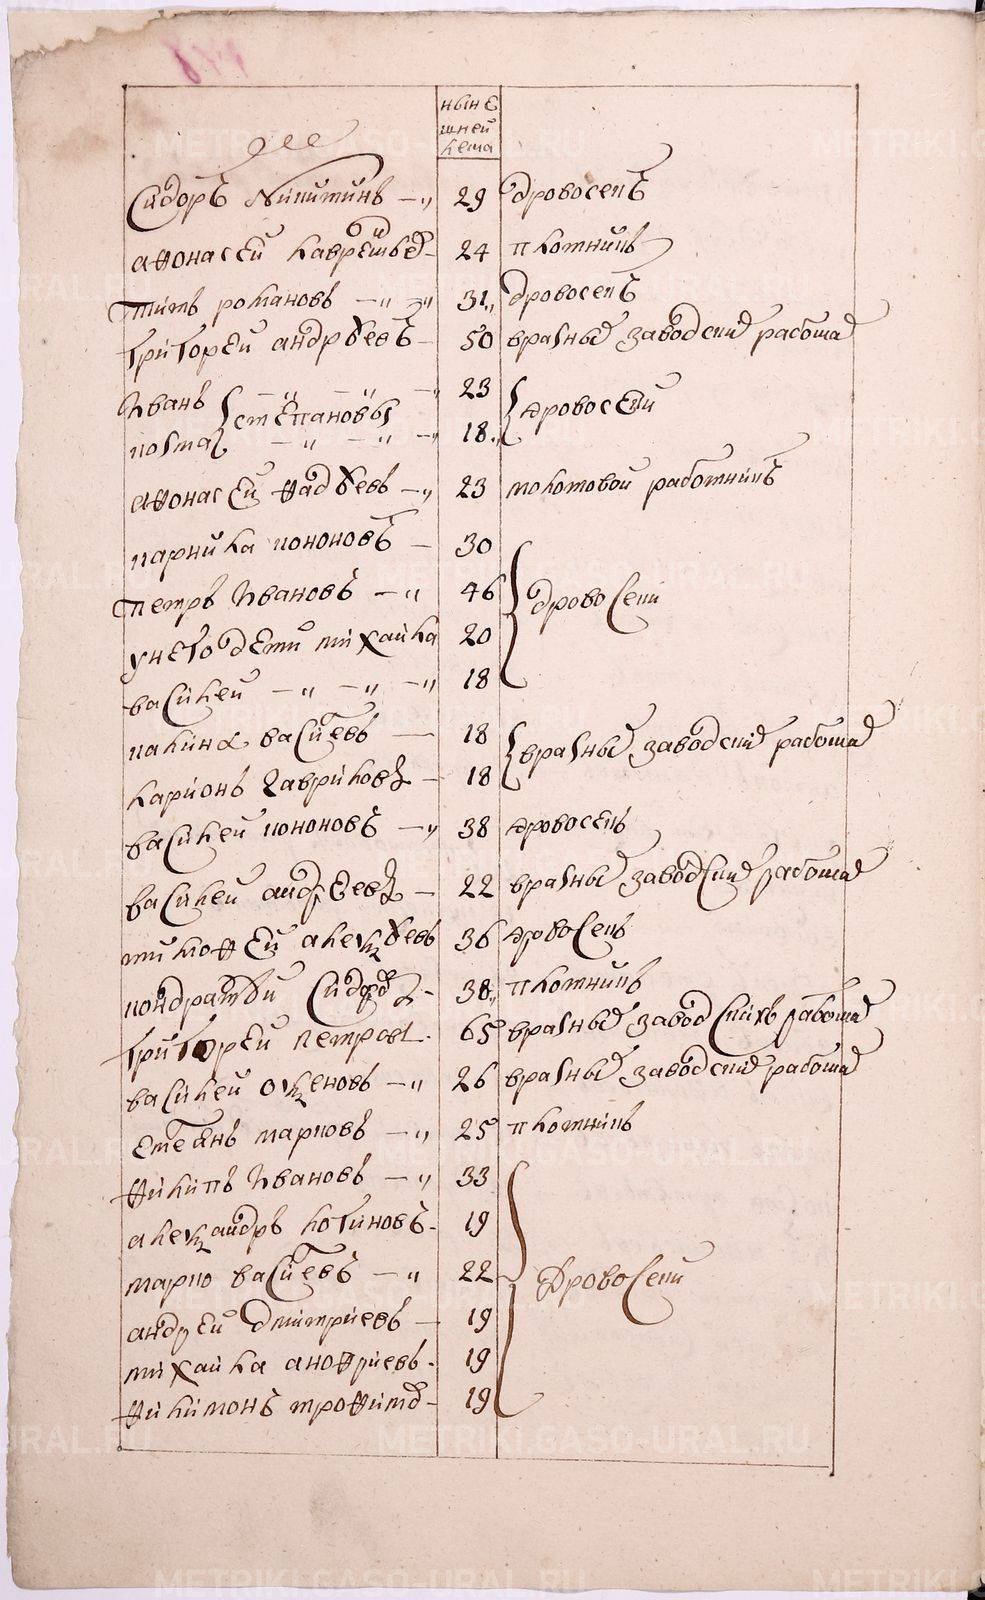 ныне
шнеи
лета
Сидоръ Никитинъ — 29 дровосекъ
афонасеи лаврентьевъ 24 плотникъ
титъ романовъ — 31 дровосекъ
григореи андрѣевъ 50 вразные заводские работы
Иванъ 23
степановы дровосеки
козма 18
афонасеи фадѣевъ — 23 молотовой работникъ
гаврила кононовъ — 30
петръ Ивановъ — 46 дровосеки
унего дети михаила 20
василеи — 18
василевъ — 18 вразные заводские работы
ларионъ гавриловъ — 18
василеи кононовъ — 38 дровосекъ
василеи андреевъ — 22 вразные заводские работы
тимофеи алексѣевъ 36 дровосекъ
кондратеи Сидоровъ 38 плотникъ
григореи петровъ 65 вразные заводскихъ работы
василеи — 26 вразные заводские работы
марковъ — 25 плотникъ
филипъ Ивановъ — 33
александръ логиновъ 19
марко василевъ — 22 дровосеки
андреи дмитриевъ — 19
михаила анофриевъ 19
филимонъ трофимов 19